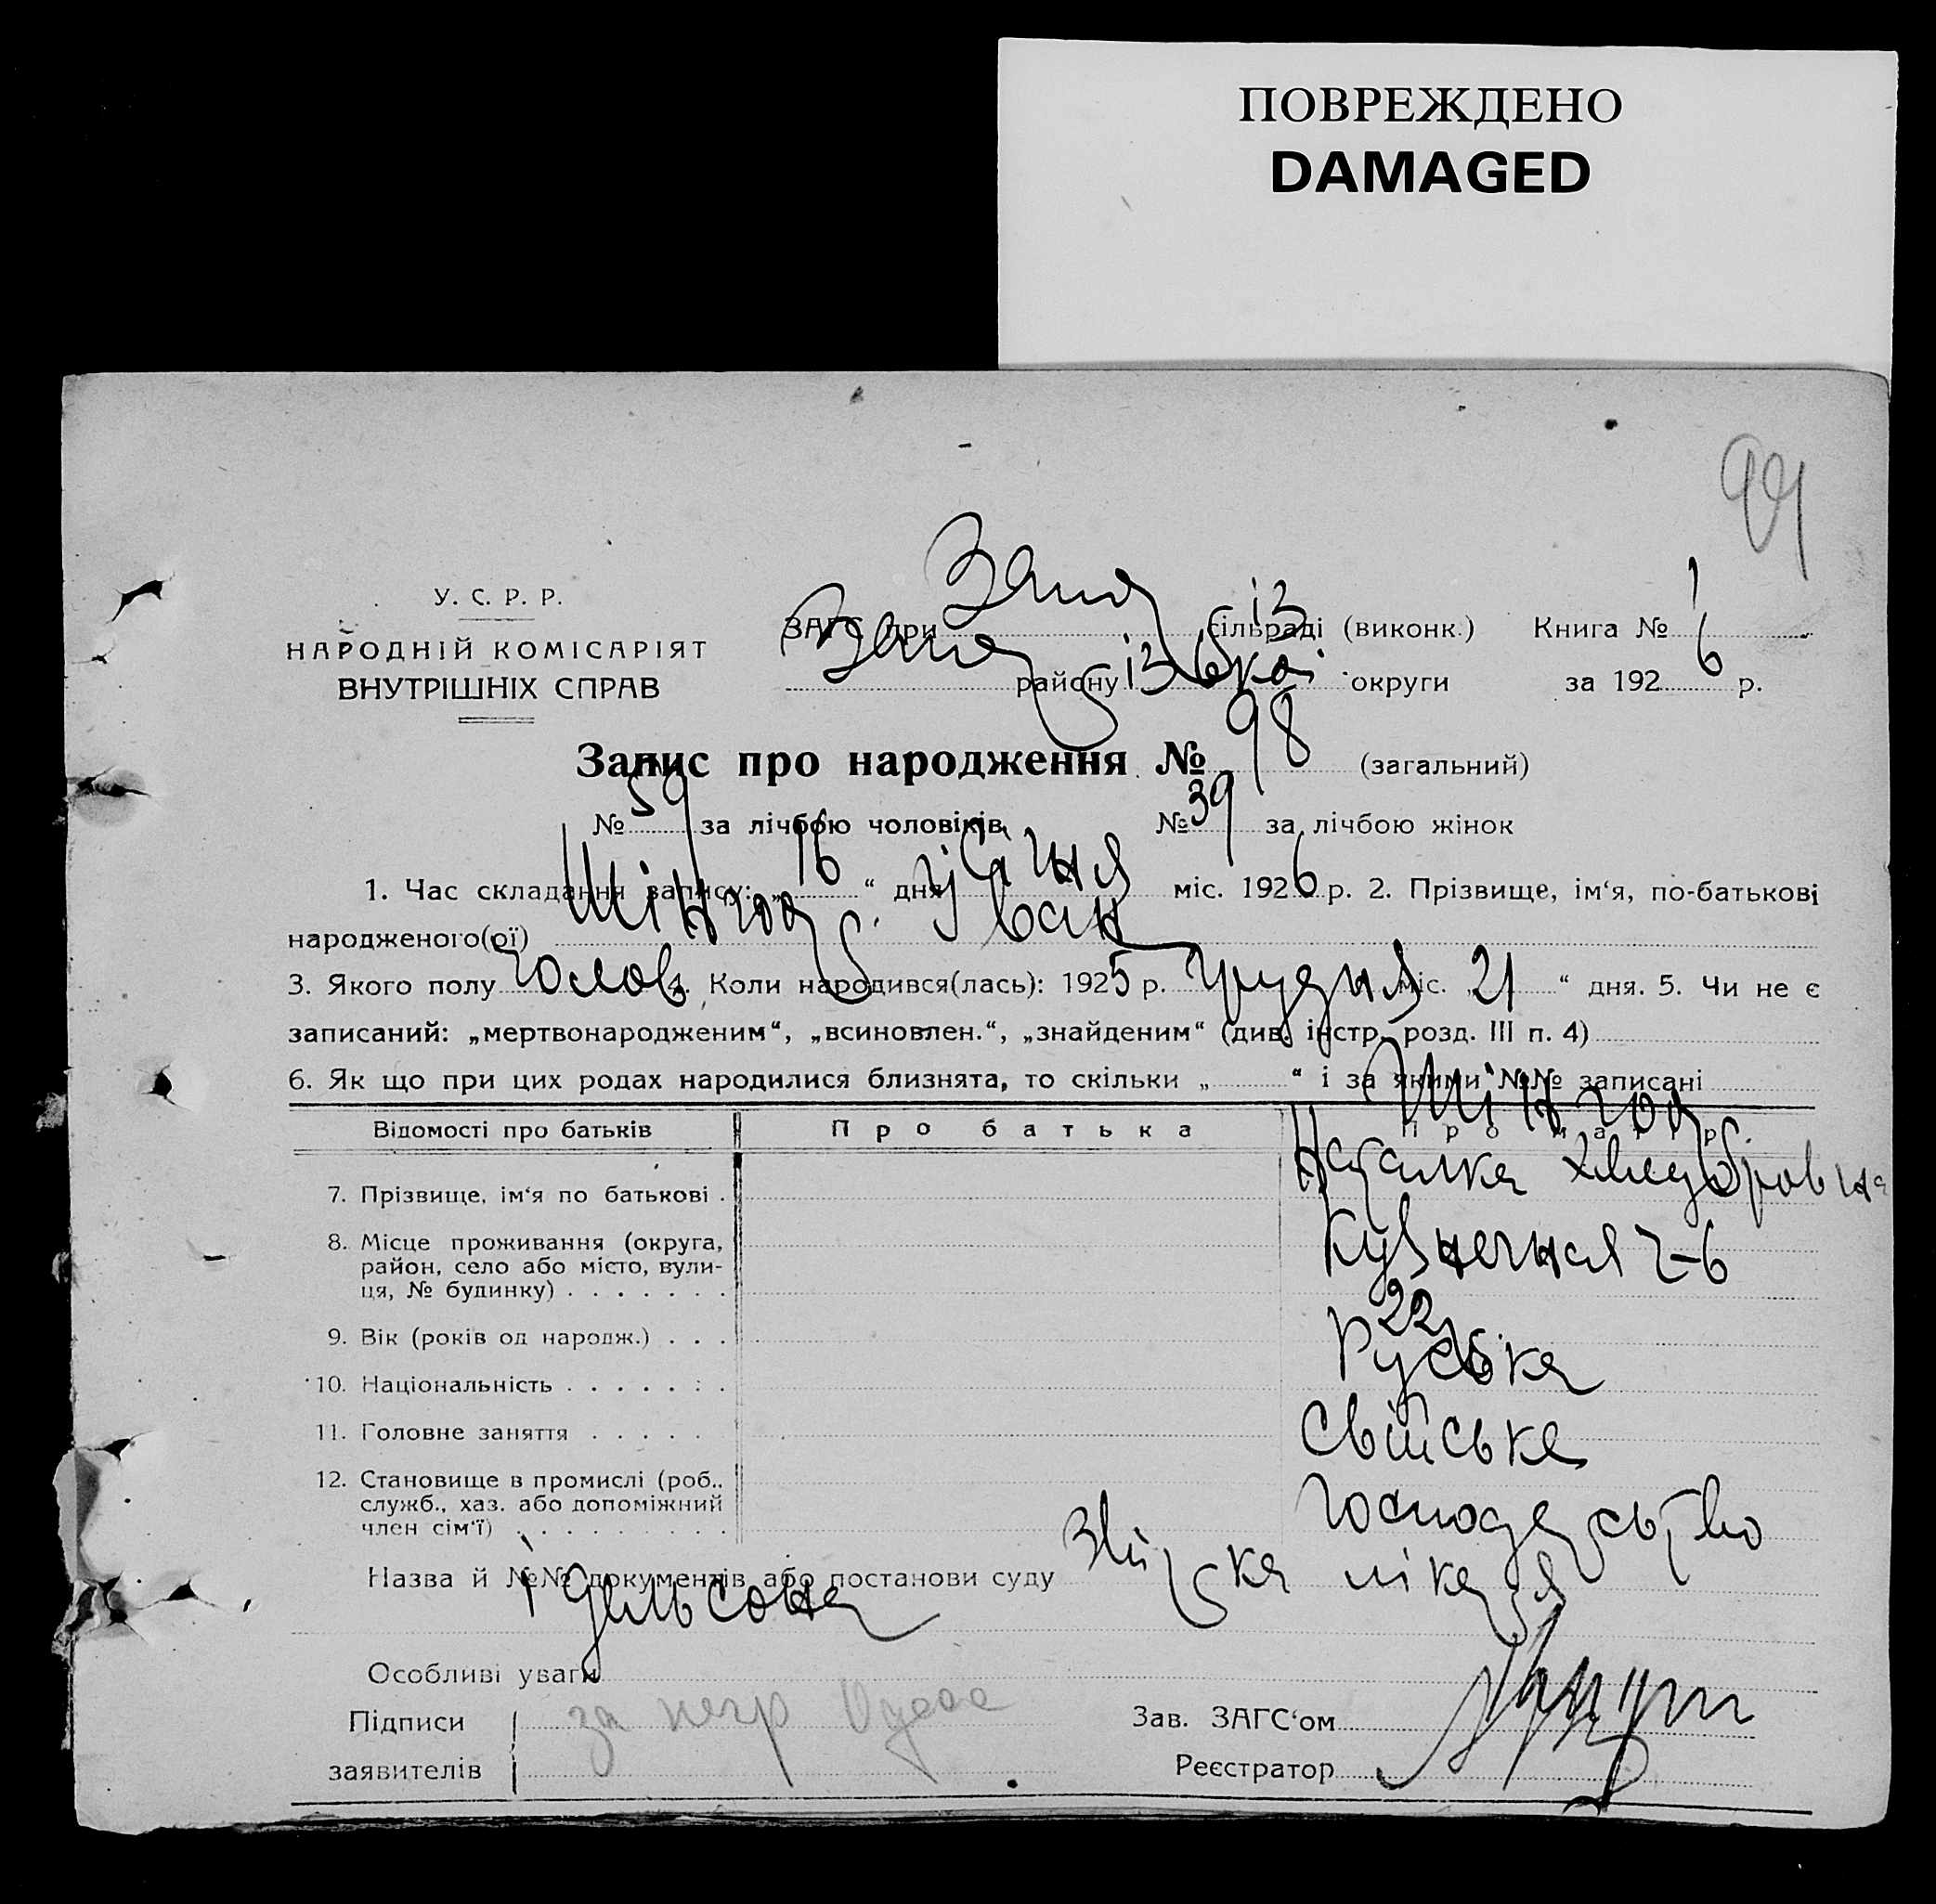 ПОВРЕЖДЕНО
DAMAGED
99
У. С. Р. Р.
НАРОДНІЙ КОМІСАРІЯТ
ВНУТРІШНІХ СПРАВ
ЗАГС при сільраді (виконк.) Книга № 1
району округи за 1926 р.
Запис про народження № 98 (загальний)
№ 59 за лічбою чоловіків, № 39 за лічбою жінок
1. Час складання запису: „16“ дня січня міс. 1926 р. 2. Прізвище, ім‘я, по-батькові
народженого(ої) Іван
3. Якого полу чолов. 4. Коли народився(лась): 1925 р. грудня міс. „21“ дня. 5. Чи не є
записаний: „мертвонародженим“, „всиновлен.“, „знайденим“ (див. інстр. розд. III п. 4)
6. Як що при цих родах народилися близнята, то скільки „ “ і за якими №№ записані
Відомості про батьків Про батька Про матір
7. Прізвище, ім‘я по батькові . Наталка
8. Місце проживання (округа,
район, село або місто, вули-
ця, № будинку) . . . . . . . Кузнечная
9. Вік (років од народж.) . . . 22
10. Національність . . . . . . . Руська
11. Головне заняття . . . . . Свійське
12. Становище в промислі (роб.,
служб., хаз. або допоміжний
член сім‘ї) . . . . . . . . .
Назва й №№ документів або постанови суду лікаря
Ідельсона
Особливі уваги
Підписи
заявителів
за негр
Зав. ЗАГС‘ом
Реєстратор